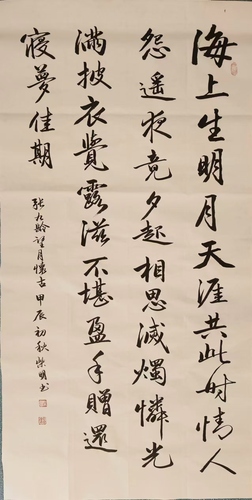 海上生明月天涯共此时情人
怨遥夜竟夕起相思滅燭憐光
满披衣覺露滋不堪盈手贈還
寝夢佳期
张九龄望月懷古甲辰初秋明书